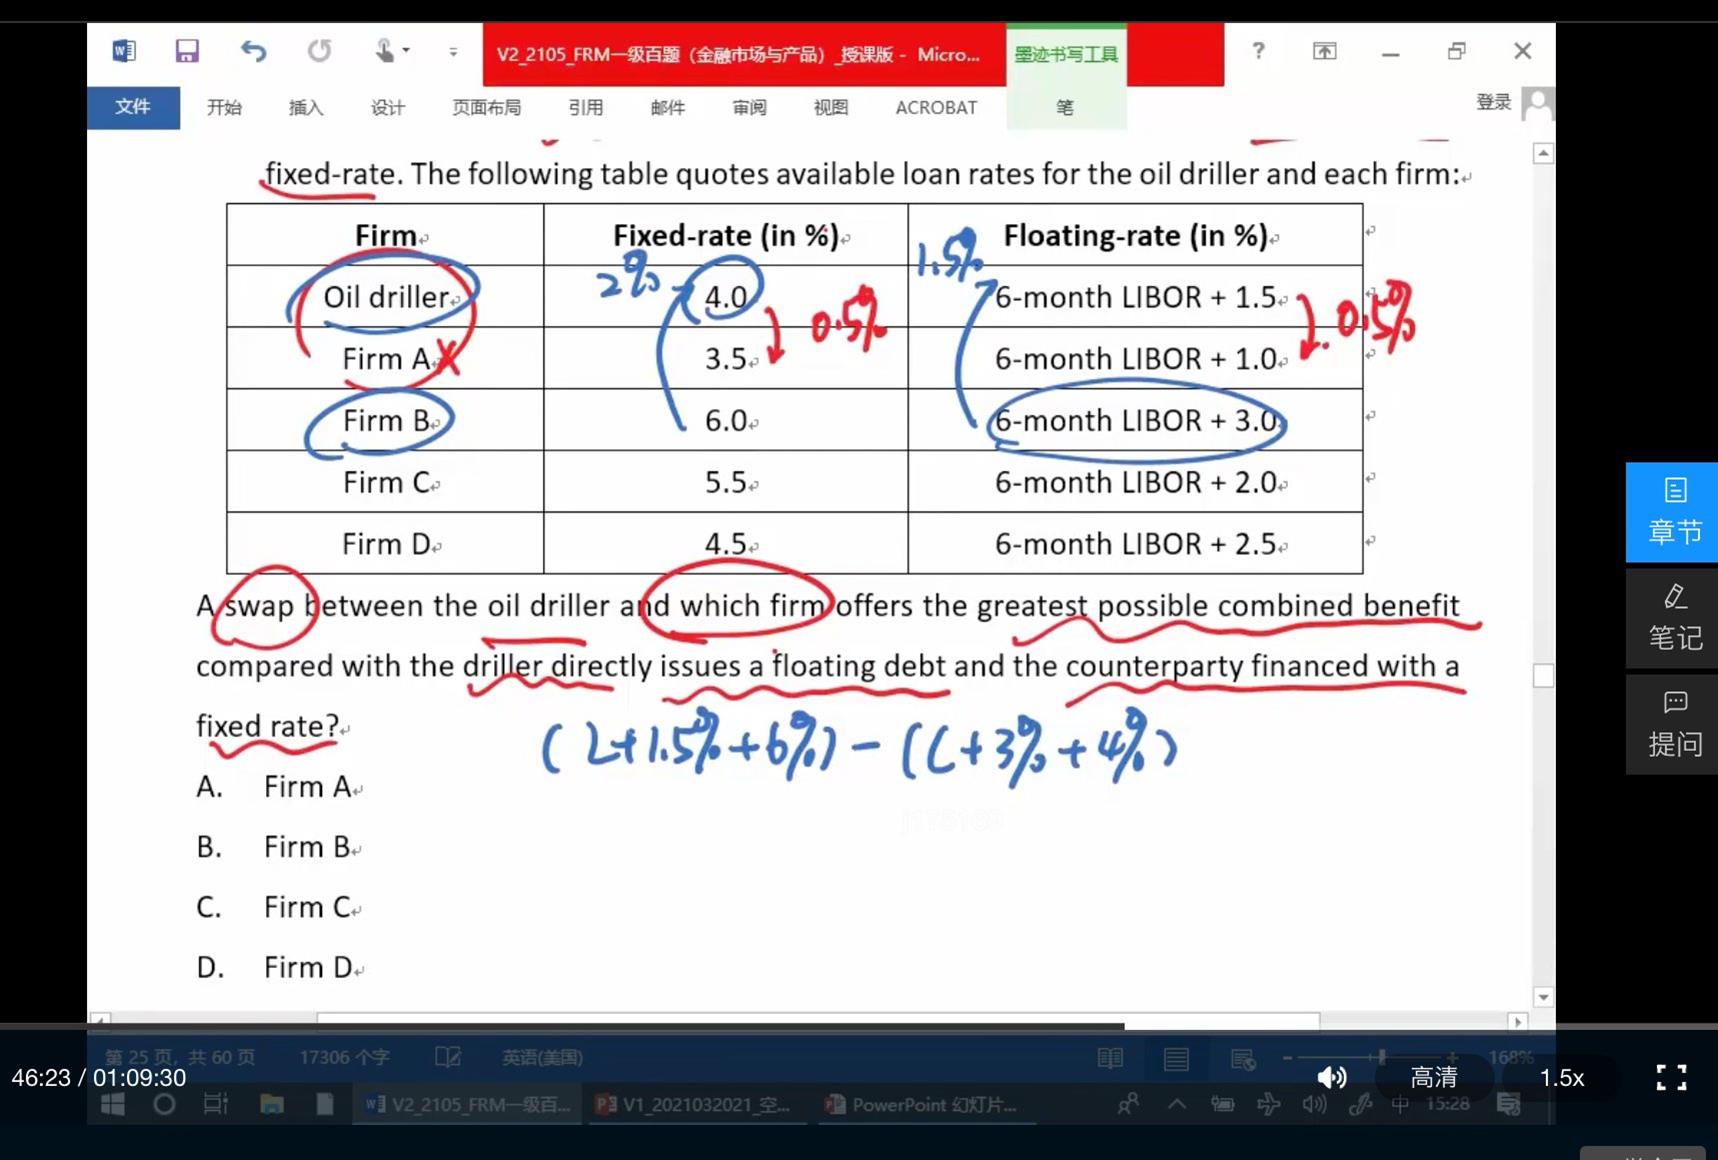 V2_2105_FRM一级百题（金融市场与产品）_授课版 - Micro...
墨迹书写工具
?
文件 开始 插入 设计 页面布局 引用 邮件 审阅 视图 ACROBAT 笔 登录
fixed-rate. The following table quotes available loan rates for the oil driller and each firm:
Firm Fixed-rate (in %) Floating-rate (in %)
2% 1.5%
Oil driller 4.0 6-month LIBOR + 1.5
0.5% 0.5%
Firm A 3.5 6-month LIBOR + 1.0
Firm B 6.0 6-month LIBOR + 3.0
Firm C 5.5 6-month LIBOR + 2.0
Firm D 4.5 6-month LIBOR + 2.5
A swap between the oil driller and which firm offers the greatest possible combined benefit
compared with the driller directly issues a floating debt and the counterparty financed with a
fixed rate?
(L+1.5%+6%)-(L+3%+4%)
A. Firm A
B. Firm B
C. Firm C
D. Firm D
章节
笔记
提问
第 25 页，共 60 页 17306 个字 英语(美国) 168%
46:23 / 01:09:30 高清 1.5x
V2_2105_FRM一级百... V1_2021032021_空... PowerPoint 幻灯片... 中 15:28